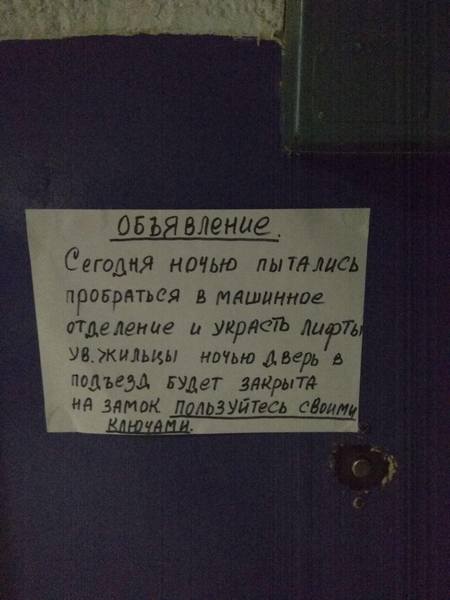 ОБЪЯВЛЕНИЕ.
Сегодня ночью пытались
пробраться в машинное
отделение и украсть лифты
ув. жильцы ночью дверь в
подъезд будет закрыта
на замок пользуйтесь своими
ключами.